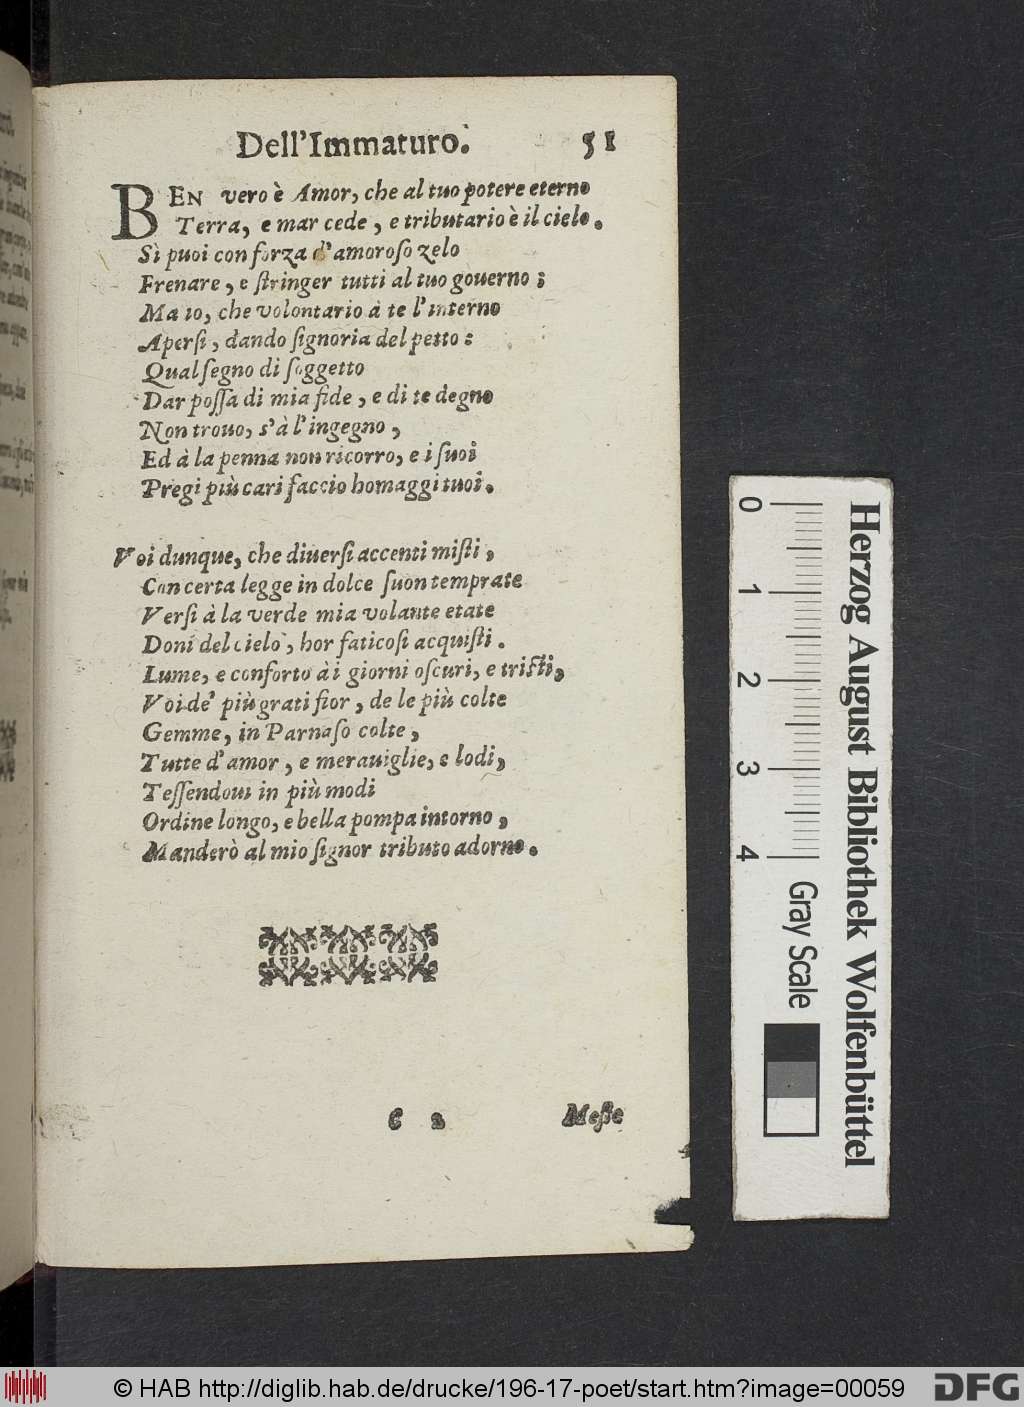 Dell'Immaturo. 51
BEN vero è Amor, che al tuo potere eterno
Terra, e mar cede, e tributario è il cielo.
Sì puoi con forza d'amoroſo zelo
Frenare, e ſtringer tutti al tuo gouerno;
Ma io, che volontario à te l'interno
Aperſi, dando ſignoria del petto:
Qual ſegno di ſoggetto
Dar poſſa di mia fide, e di te degno
Non trouo, s'à l'ingegno,
Ed à la penna non ricorro, e i ſuoi
Pregi più cari faccio homaggi tuoi.
Voi dunque, che diuerſi accenti miſti,
Con certa legge in dolce ſuon temprate
Verſi à la verde mia volante etate
Doni del cielo, hor faticoſi acquiſti.
Lume, e conforto à i giorni oſcuri, e triſti,
Voi de' più grati fior, de le più colte
Gemme, in Parnaſo colte,
Tutte d'amor, e merauiglie, e lodi,
Teſſendoui in più modi
Ordine longo, e bella pompa intorno,
Manderò al mio ſignor tributo adorno.
C 2 Meſte
0 1 2 3 4 Gray Scale
Herzog August Bibliothek Wolfenbüttel
© HAB http://diglib.hab.de/drucke/196-17-poet/start.htm?image=00059 DFG